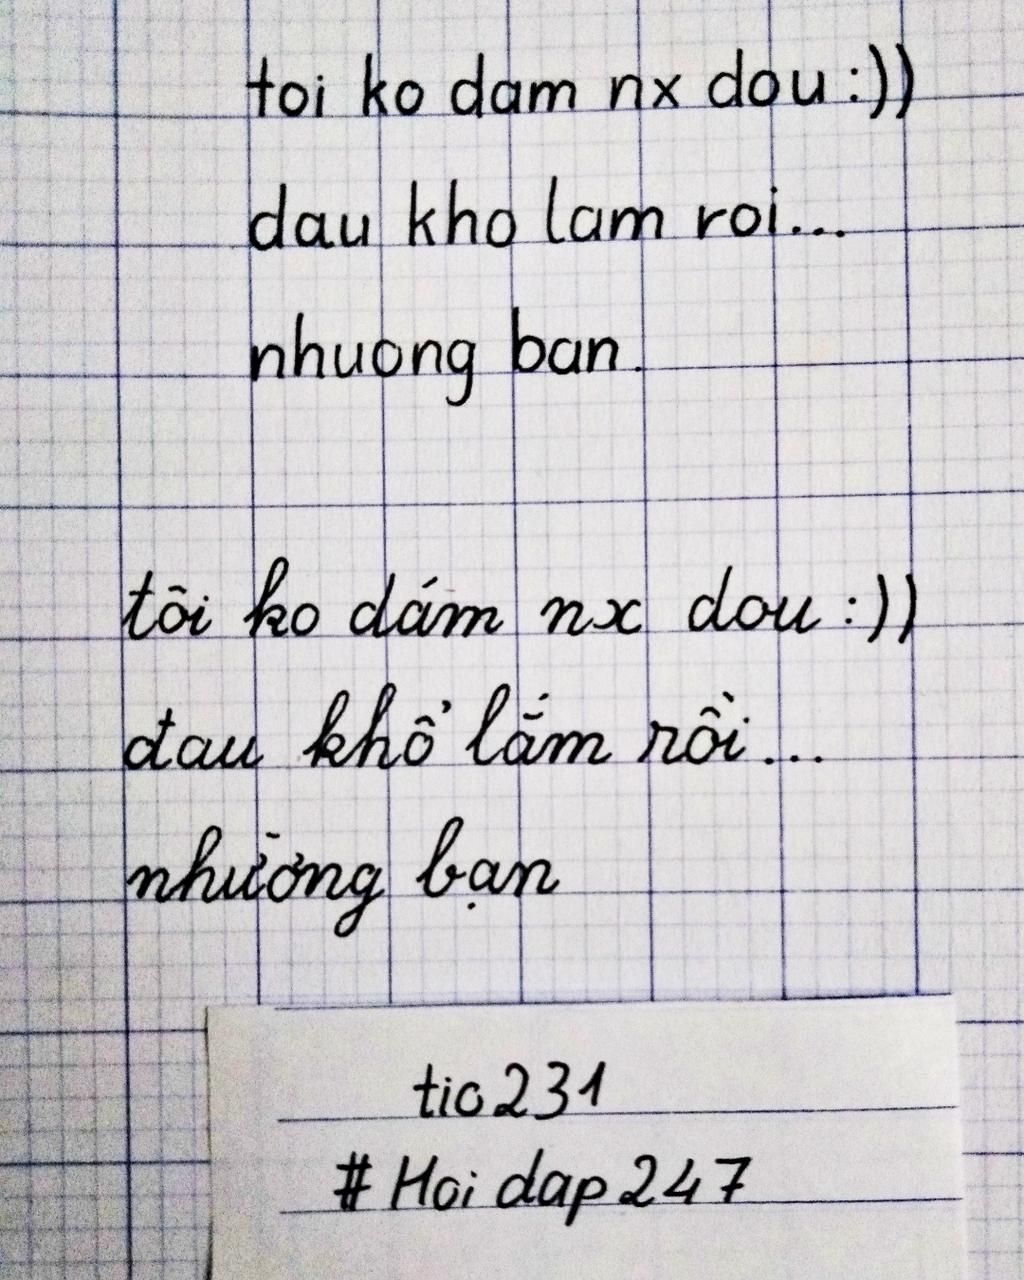 toi ko dam nx dou :))
dau kho lam roi...
nhuong ban.
tôi ko dám nx dou :))
đau khổ lắm rồi...
nhường bạn
tic231
# Hoi dap 247